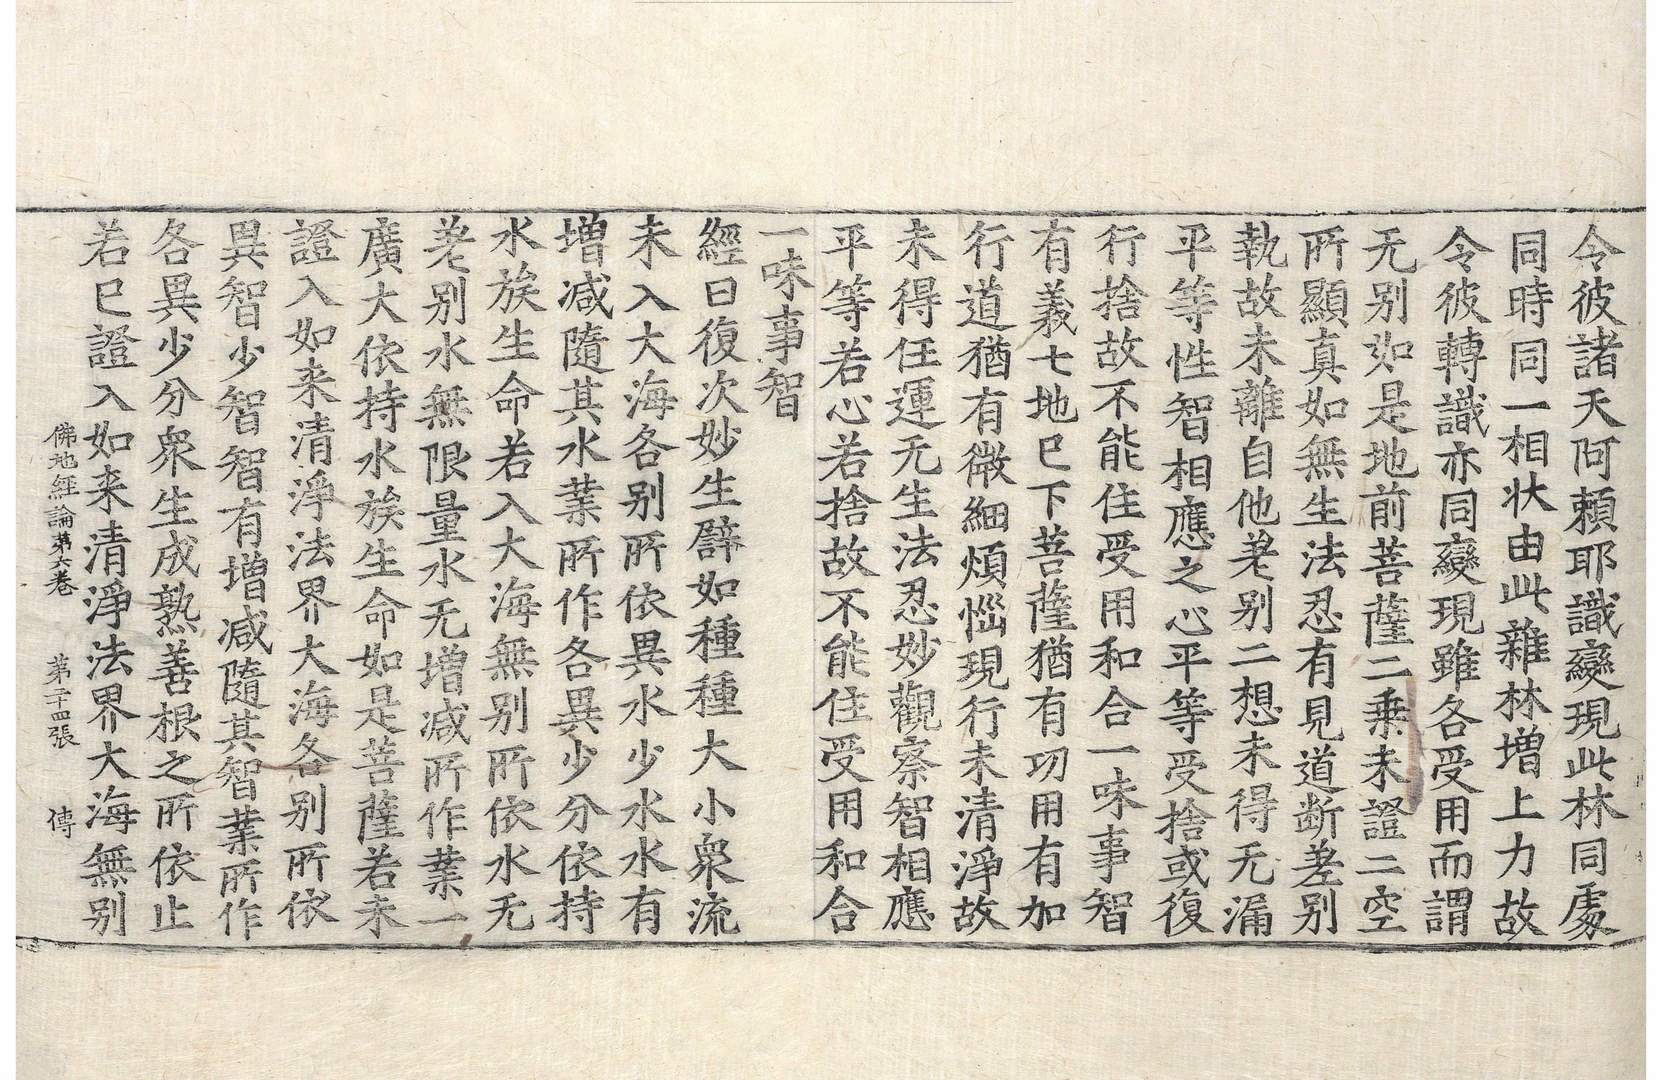 令彼諸天阿頼耶識變現此林同處
同時同一相状由此雜林増上力故
令彼轉識亦同變現雖各受用而謂
无别如是地前菩薩二乗未證二空
所顯真如無生法忍有見道断差别
執故未離自他差别二想未得无漏
平等性智相應之心平等受捨或復
行捨故不能住受用和合一味事智
有義七地已下菩薩猶有功用有加
行道猶有微細煩惱現行未清淨故
未得任運无生法忍妙觀察智相應
平等若心若捨故不能住受用和合
一味事智
經曰復次妙生譬如種種大小衆流
未入大海各别所依異水少水水有
増减隨其水業所作各異少分依持
水族生命若入大海無别所依水无
差别水無限量水无増减所作業一
廣大依持水族生命如是菩薩若未
證入如来清淨法界大海各别所依
異智少智智有増减隨其智業所作
各異少分衆生成熟善根之所依止
若已證入如来清淨法界大海無别
佛地經論第六卷　第二十四張　傳